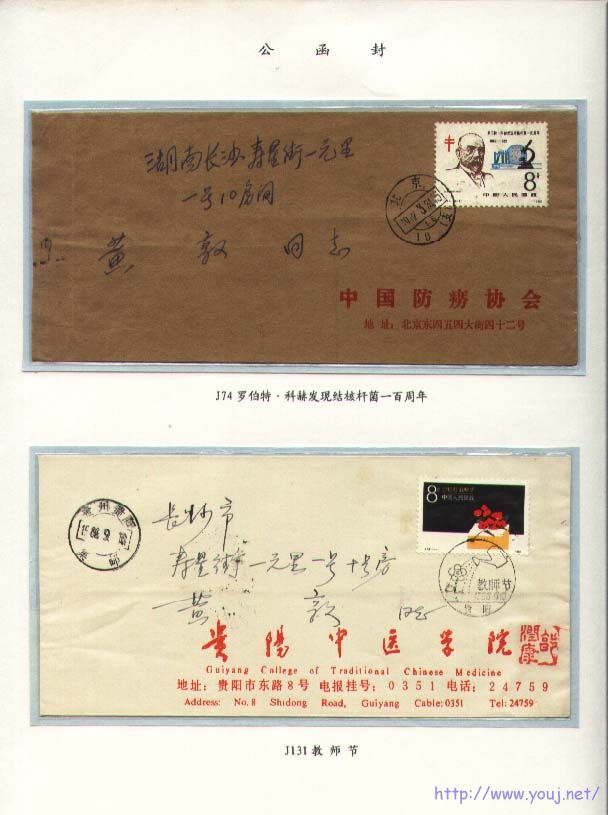 公函封
湖南长沙寿星街一元里
一号10房间
黄敦同志
8分
中国人民邮政
北京
中国防痨协会
地址：北京东四五四大街四十二号
J74罗伯特·科赫发现结核杆菌一百周年
8分
中国人民邮政
贵州贵阳
长沙市
寿星街一元里一号十号房
黄敦同志
教师节
贵阳
贵陽中医学院
Guiyang College of Traditional Chinese Medicine
地址：贵阳市东路8号 电报挂号：0351 电话：24759
Address: No.8 Shidong Road, Guiyang Cable:0351 Tel:24759
J131教师节
http://www.youj.net/